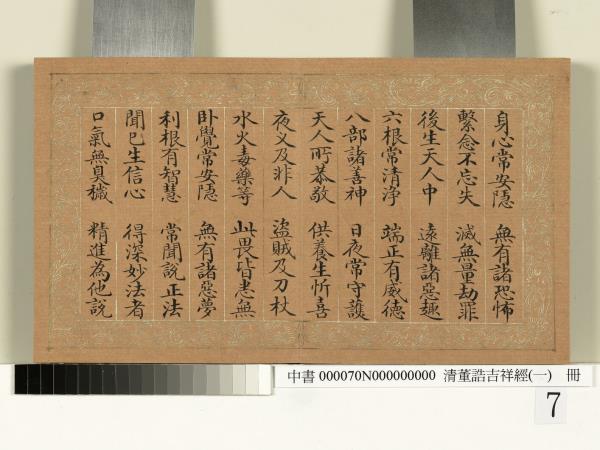 身心常安隱 無有諸恐怖
繫念不忘失 滅無量劫罪
後生天人中 遠離諸惡趣
六根常清淨 端正有威德
八部諸善神 日夜常守護
天人所恭敬 供養生忻喜
夜叉及非人 盜賊及刀杖
水火毒藥等 此畏皆悉無
卧覺常安隱 無有諸惡夢
利根有智慧 常聞說正法
聞已生信心 得深妙法者
口氣無臭穢 精進為他說
中書 000070N000000000 清董誥吉祥經(一) 冊
7